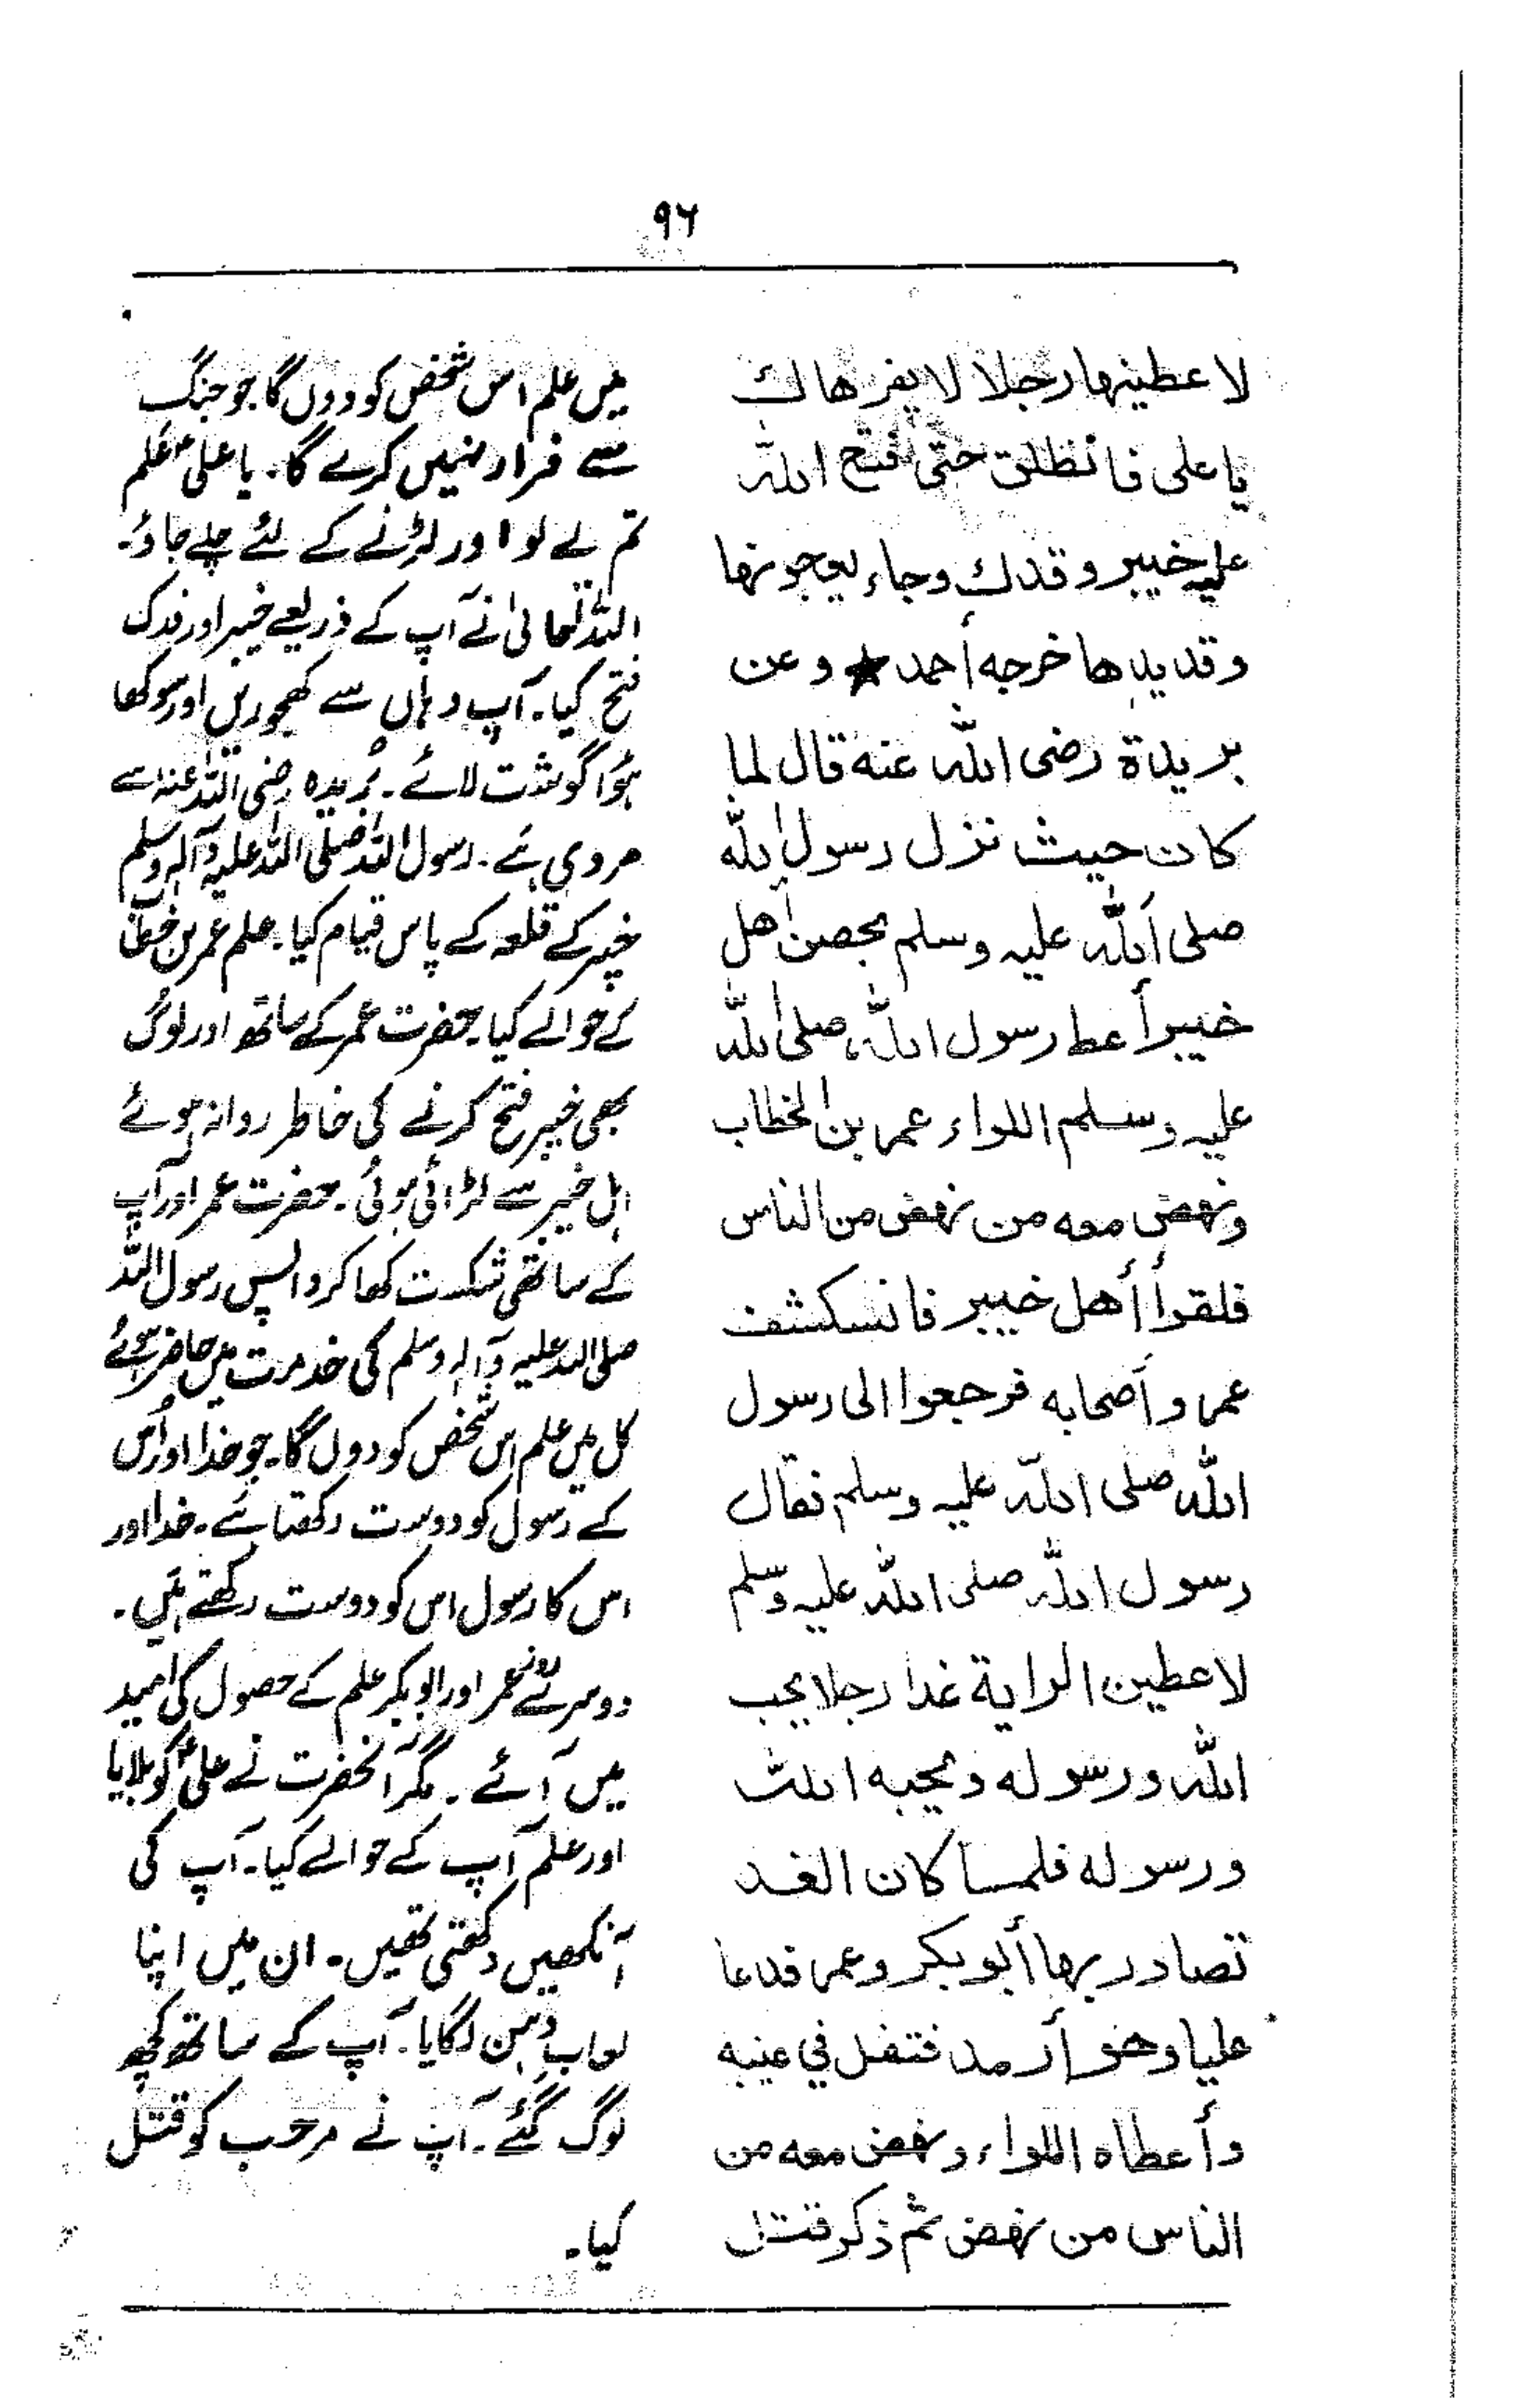 ۹۶
لاعطينها رجلا لا يفر هاك
يا على فانطلق حتى فتح الله
عليه خيبر وفدك وجاء بعجوتها
وقديدها خرجه أحمد ★ وعن
بريدة رضى الله عنه قال لما
كان حيث نزل رسول الله
صلى الله عليه وسلم بحصن أهل
خيبر أعطا رسول الله صلى الله
عليه وسلم اللواء عمر بن الخطاب
ونهض معه من نهض من الناس
فلقوا أهل خيبر فانكشف
عمر وأصحابه فرجعوا الى رسول
الله صلى الله عليه وسلم فقال
رسول الله صلى الله عليه وسلم
لاعطين الراية غدا رجلا يحب
الله ورسوله ويحبه الله
ورسوله فلما كان الغد
تصادر بها أبو بكر وعمر فدعا
عليا وهو أرمد فتفل في عينيه
وأعطاه اللواء ونهض معه من
الناس من نهض ثم ذكر قتل
میں علم اس شخص کو دوں گا جو جنگ
سے فرار نہیں کرے گا۔ یا علیؑ علم
تم لے لو اور لڑنے کے لئے چلے جاؤ۔
اللہ تعالیٰ نے آپ کے ذریعے خیبر اور فدک
فتح کیا۔ آپ وہاں سے کھجوریں اور سوکھا
ہؤا گوشت لائے۔ بُریدہ رضی اللہ عنہ سے
مروی ہے۔ رسول اللہ صلی اللہ علیہ وآلہ وسلم
خیبر کے قلعہ کے پاس قیام کیا۔ علم عمر بن خطاب
کے حوالے کیا۔ حضرت عمر کے ساتھ اور لوگ
بھی خیبر فتح کرنے کی خاطر روانہ ہوئے
اہل خیبر سے لڑائی ہوئی۔ حضرت عمر اور آپ
کے ساتھی شکست کھا کر واپس رسول اللہ
صلی اللہ علیہ وآلہ وسلم کی خدمت میں حاضر ہوئے
کل میں علم اس شخص کو دول گا۔ جو خدا اور اُس
کے رسول کو دوست رکھتا ہے۔ خدا اور
اس کا رسول اس کو دوست رکھتے ہیں۔
دوسرے روز عمر اور ابوبکر علم کے حصول کی امید
میں آئے۔ مگر آنحضرت نے علیؑ کو بلایا
اور علم آپ کے حوالے کیا۔ آپ کی
آنکھیں دکھتی تھیں۔ ان میں اپنا
لعاب دہن لگایا۔ آپ کے ساتھ کچھ
لوگ گئے۔ آپ نے مرحب کو قتل
کیا۔